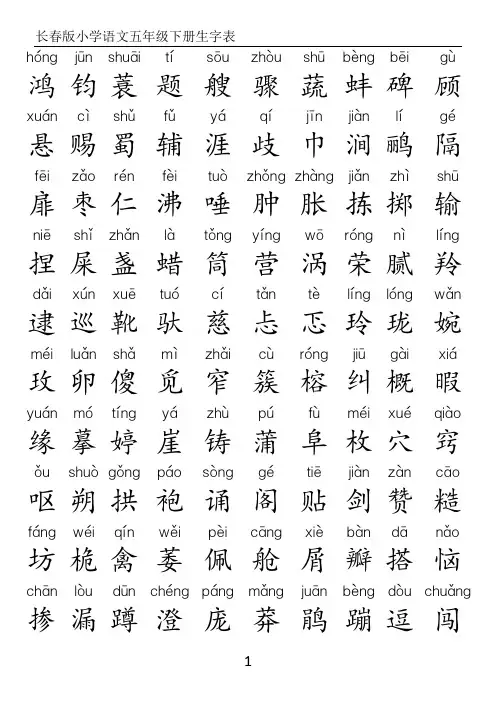 长春版小学语文五年级下册生字表
hóng jūn shuāi tí sōu zhòu shū bèng bēi gù
鸿 钧 蓑 题 艘 骤 蔬 蚌 碑 顾
xuán cì shǔ fǔ yá qí jīn jiàn lí gé
悬 赐 蜀 辅 涯 歧 巾 涧 鹂 隔
fēi zǎo rén fèi tuò zhǒng zhàng jiǎn zhì shū
扉 枣 仁 沸 唾 肿 胀 拣 掷 输
niē shǐ zhǎn là tǒng yíng wō róng nì líng
捏 屎 盏 蜡 筒 营 涡 荣 腻 羚
dǎi xún xuē tuó cí tǎn tè líng lóng wǎn
逮 巡 靴 驮 慈 忐 忑 玲 珑 婉
méi luǎn shǎ mì zhǎi cù róng jiū gài xiá
玫 卵 傻 觅 窄 簇 榕 纠 概 暇
yuán mó tíng yá zhù pú fù méi xué qiào
缘 摹 婷 崖 铸 蒲 阜 枚 穴 窍
ǒu shuò gǒng páo sòng gé tiē jiàn zàn cāo
呕 朔 拱 袍 诵 阁 贴 剑 赞 糙
fáng wéi qín wěi pèi cāng xiè bàn dā nǎo
坊 桅 禽 萎 佩 舱 屑 瓣 搭 恼
chān lòu dūn chéng páng mǎng juān bèng dòu chuǎng
掺 漏 蹲 澄 庞 莽 鹃 蹦 逗 闯
1